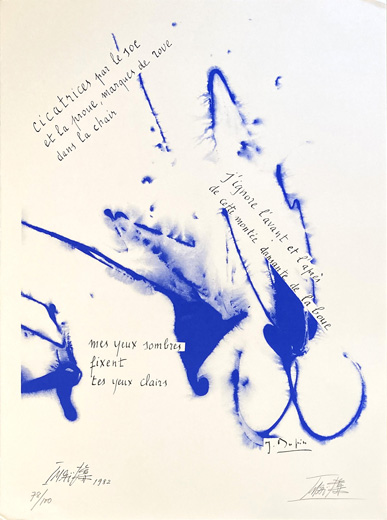 cicatrices par le soc
et la proue, marques de roue
dans la chair
J'ignore l'avant et l'après
de cette montée dansante de la boue
mes yeux sombres
fixent
tes yeux clairs
J. Dupin
IMAï 1982
/100
IMAï